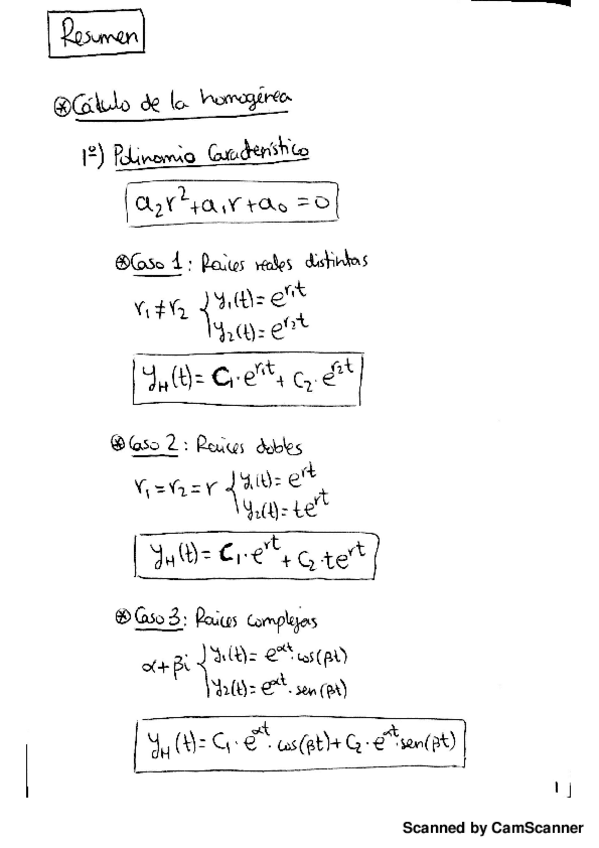 Resumen
⊛ Cálculo de la homogénea
1º) Polinomio Característico
a₂r²+a₁r+a₀=0
⊛ Caso 1: Raices reales distintas
r₁≠r₂ { y₁(t)= e^{r₁t}
y₂(t)= e^{r₂t}
y_H(t)= C₁·e^{r₁t} + C₂·e^{r₂t}
⊛ Caso 2: Raices dobles
r₁=r₂=r { y₁(t)= e^{rt}
y₂(t)= te^{rt}
y_H(t)= C₁·e^{rt} + C₂·te^{rt}
⊛ Caso 3: Raices complejas
α+βi { y₁(t)= e^{αt}·cos(βt)
y₂(t)= e^{αt}·sen(βt)
y_H(t)= C₁·e^{αt}·cos(βt)+C₂·e^{αt}·sen(βt)
1
Scanned by CamScanner